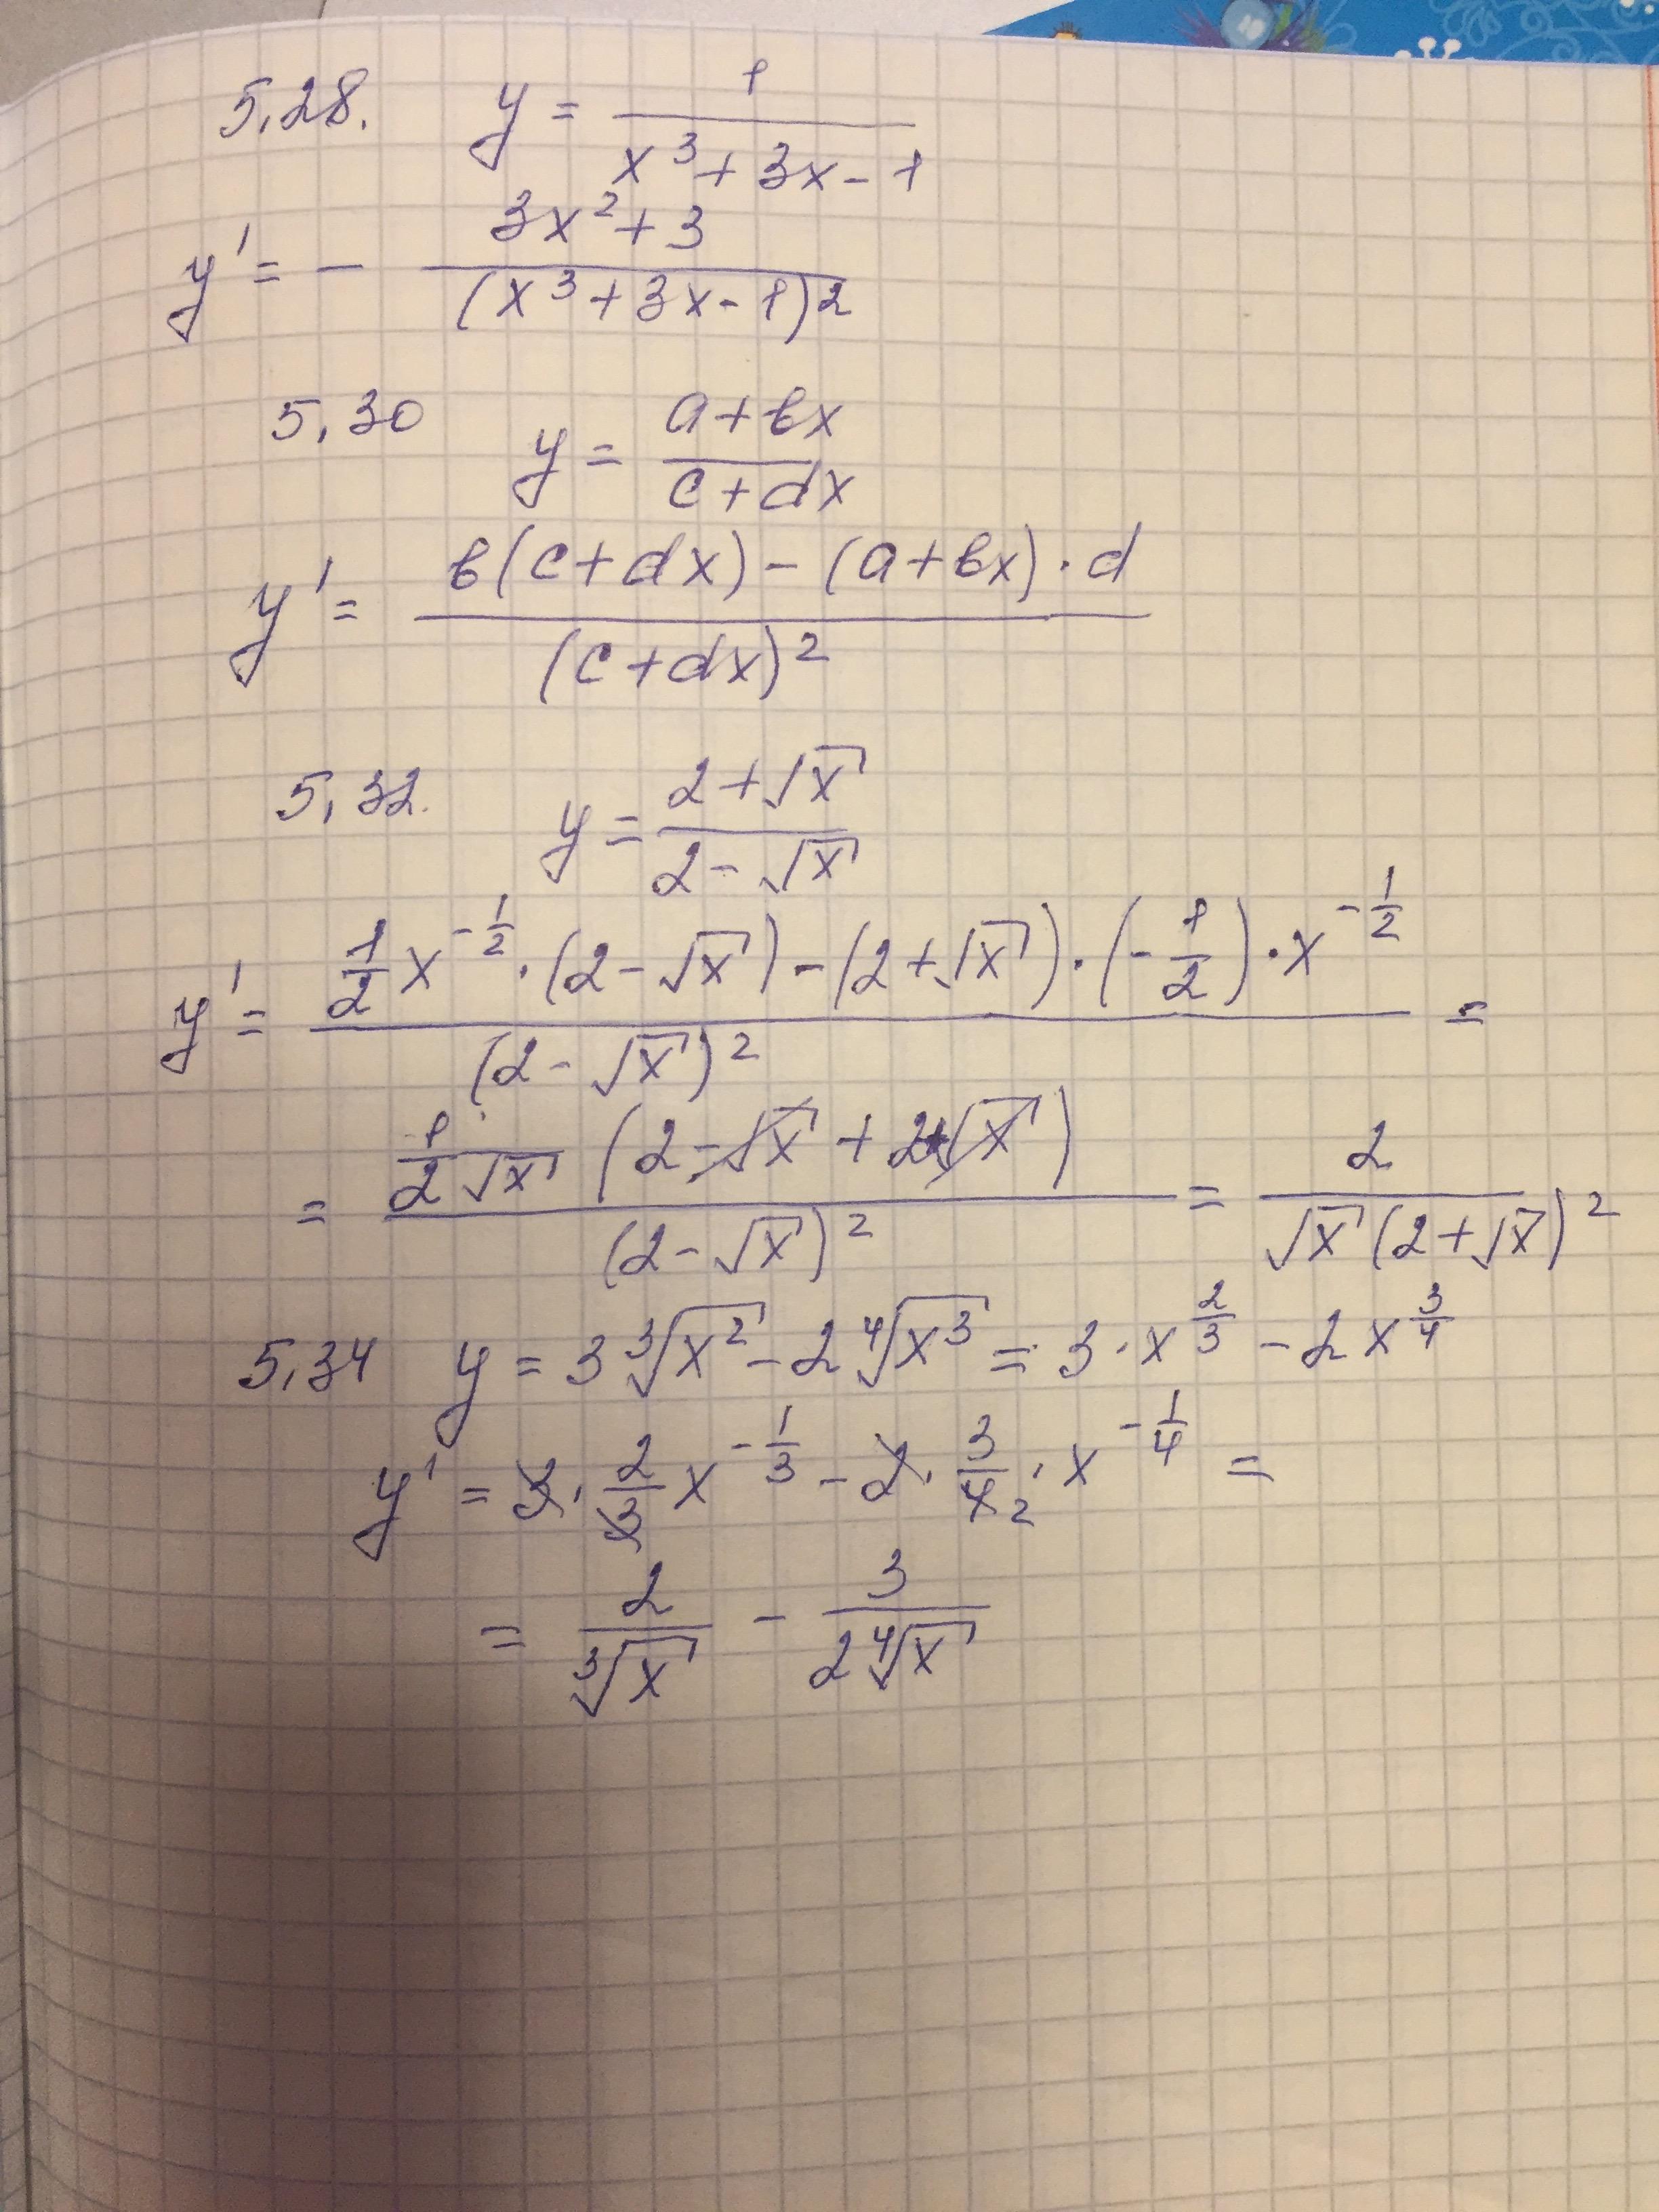 5,28. y = 1/(x³ + 3x - 1)
y' = - (3x² + 3)/((x³ + 3x - 1)²)
5,30 y = (a + bx)/(c + dx)
y' = (b(c + dx) - (a + bx) · d)/((c + dx)²)
5,32. y = (2 + √x)/(2 - √x)
y' = (1/2 x^(-1/2) · (2 - √x) - (2 + √x) · (-1/2) · x^(-1/2))/((2 - √x)²) =
= (1/(2√x) (2 - √x + 2 + √x))/((2 - √x)²) = 2/(√x (2 + √x)²)
5,34 y = 3∛x² - 2∜x³ = 3 · x^(2/3) - 2x^(3/4)
y' = 3 · 2/3 x^(-1/3) - 2 · 3/4 2 · x^(-1/4) =
= 2/∛x - 3/(2∜x)